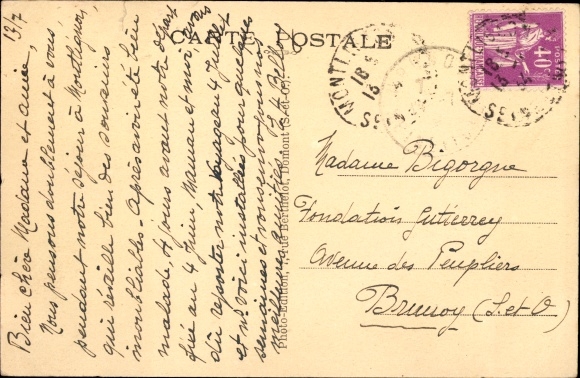 CARTE POSTALE
13/7
Bien chère Madame et amie,
Nous pensons doublement à vous
pendant notre séjour à Montlignon,
qui réveille bien des souvenirs
inoubliables. Après avoir été bien
malade, 8 jours avant notre départ
fixé au 4 Juin, Maman et moi, avons
dû reporter notre voyage au 4 Juillet
et ns voici installées pour quelques
semaines et vous envoyons nos
meilleures amitiés
Photo-Edition, rue Berthelot, Domont (S.-et-O.)
40c
MONTLI
18
13
SEINE
Madame Bigorgne
Fondation Gutierrey
Avenue des Peupliers
Brunoy (S. et O)